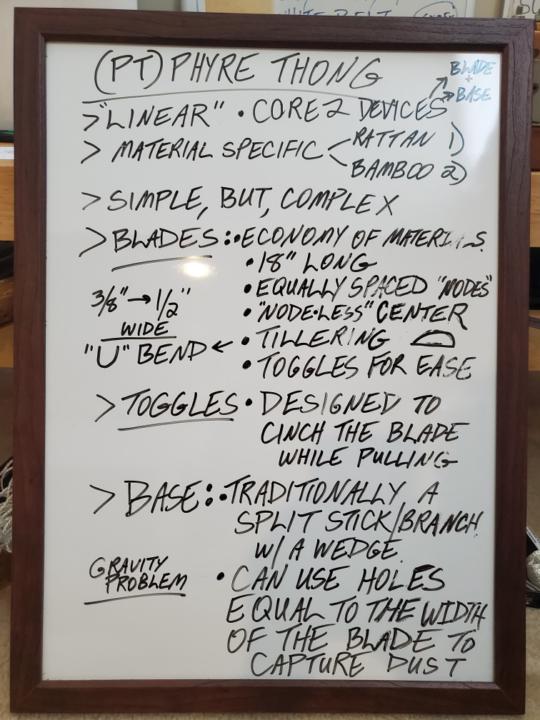 (PT) PHYRE THONG
BLADE
+
BASE
>"LINEAR" • CORE 2 DEVICES
> MATERIAL SPECIFIC
RATTAN 1)
BAMBOO 2)
> SIMPLE, BUT, COMPLEX
> BLADES: • ECONOMY OF MATERIALS.
• 18" LONG
• EQUALLY SPACED "NODES"
• "NODE-LESS" CENTER
3/8" → 1/2"
WIDE
"U" BEND ← • TILLERING
• TOGGLES FOR EASE
> TOGGLES • DESIGNED TO
CINCH THE BLADE
WHILE PULLING
> BASE: • TRADITIONALLY A
SPLIT STICK/BRANCH
W/ A WEDGE.
GRAVITY
PROBLEM
• CAN USE HOLES
EQUAL TO THE WIDTH
OF THE BLADE TO
CAPTURE DUST